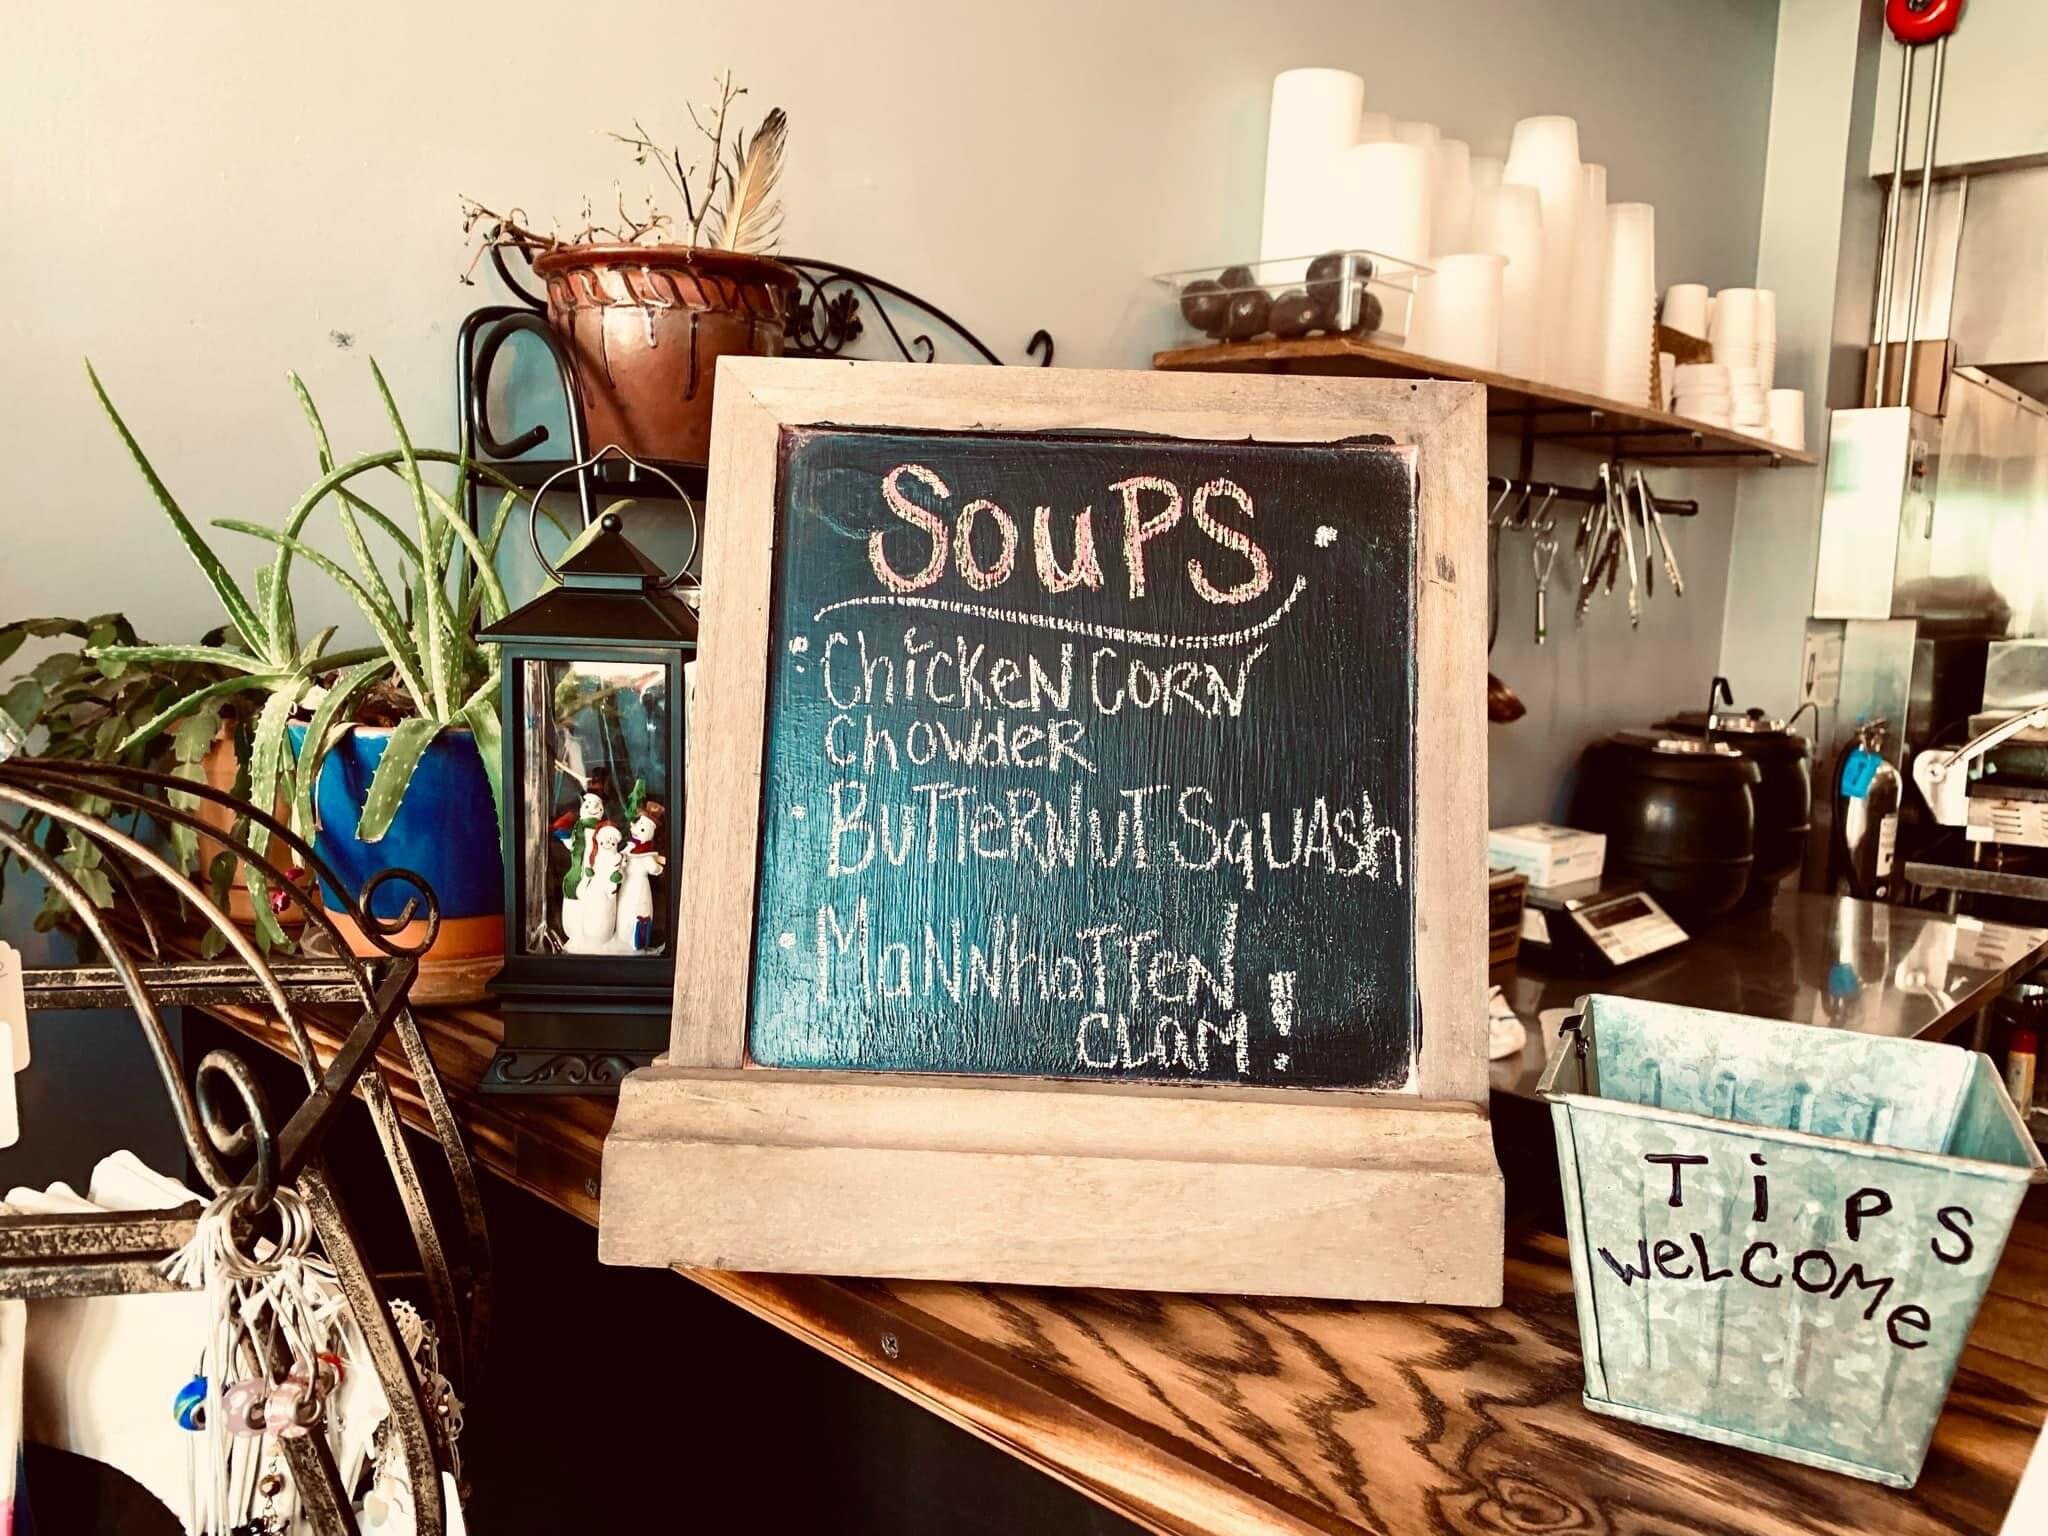 SouPS
• ChicKeN CORN
ChowdeR
• BuTTeRNuT SqUASh
• MaNNhaTTeN
CLaM!
TiPS
WeLCOMe